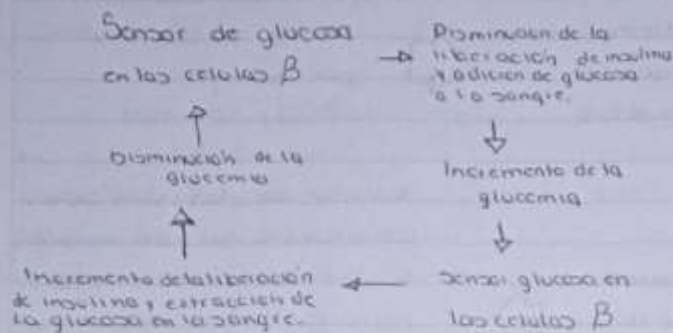 Sensor de glucosa
en las celulas β
Disminución de la
liberación de insulina
y adición de glucosa
a la sangre.
Incremento de la
glucemia
Sensor glucosa en
las celulas β
Incremento de la liberación
de insulina y extracción de
la glucosa en la sangre.
Disminución de la
glucemia